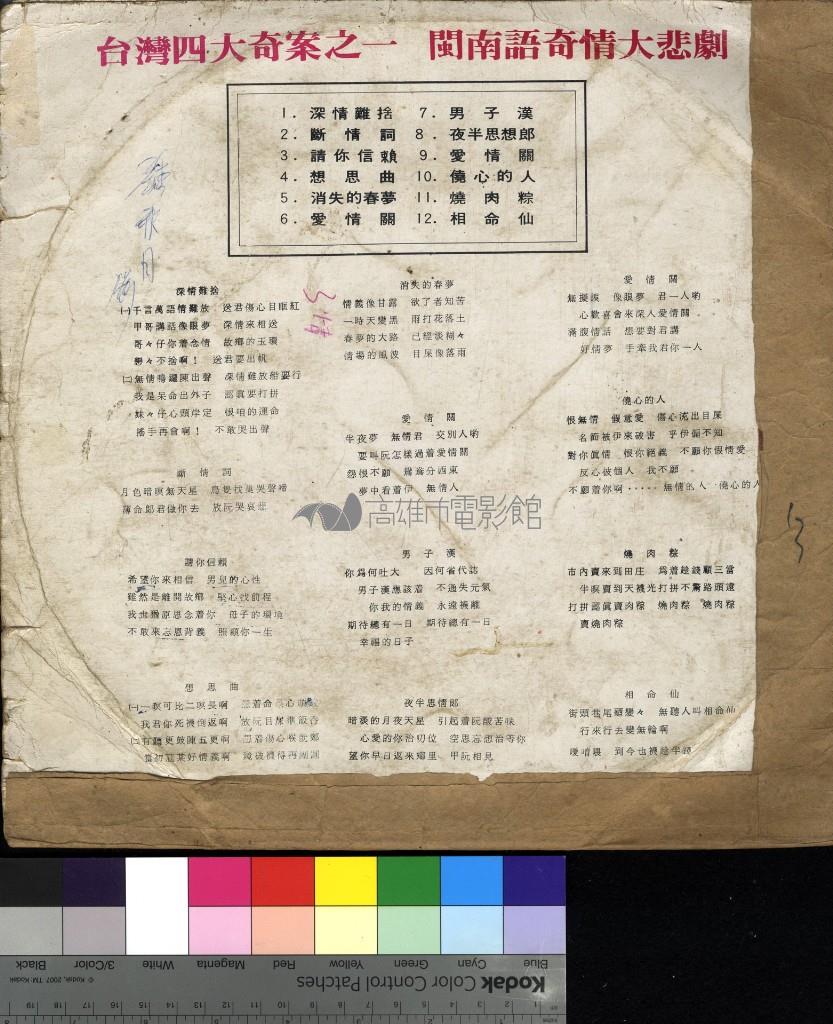 台灣四大奇案之一　閩南語奇情大悲劇
1. 深情難捨　7. 男子漢
2. 斷情詞　8. 夜半思想郎
3. 請你信賴　9. 愛情關
4. 想思曲　10. 僥心的人
5. 消失的春夢　11. 燒肉粽
6. 愛情關　12. 相命仙
深情難捨
㈠千言萬語情難放　送君傷心目眶紅
甲哥講話像眼夢　深情來相送
哥々仔你着念情　故鄉的玉環
不捨啊！　送君要出帆
我是呆命出外子　要打拼
妹々仔心頭岸定　恨咱的運命
搖手再會啊！　不敢哭出聲
斷情詞
月色暗暝無天星
薄命郎君做你去　放阮哭哀悲
請你信賴
希望你來相信　男兒的心性
雖然是離開故鄉　堅心找前程
不敢來忘恩背義　照顧你一生
想思曲
我君你死襪倒返啊
消失的春夢
情義像甘露　飲了者知苦
一時天變黑　雨打花落土
春夢的大路　已經淡糊々
情場的風波　目屎像落雨
愛情關
半夜夢　無情君　交別人喲
要叫阮怎樣過着愛情關
怨恨不願　鴛鴦分西東
夢中看着伊　無情人
男子漢
你為何吐大　因何省代誌
男子漢應該着　不通失元氣
你我的情義　永遠襪離
期待總有一日　期待總有一日
幸福的日子
夜半思情郎
暗淡的月夜天星　引起着阮酸苦味
心愛的你治叨位　空思忘想治等你
望你早日返來鄉里　甲阮相見
愛情關
無擬疑　像眼夢　君一人喲
心歡喜會來深入愛情關
滿腹情話　想要對君講
好情夢　手牽我君你一人
僥心的人
恨無情　假意愛　傷心流出目屎
名節被伊來破害　乎伊偏不知
對你眞情　恨你絕義　不願你假情愛
反心彼個人　我不願
不願着你啊‥‥‥無情的人　僥心的人
燒肉粽
市內賣來到田庄　為着趁錢顧三當
半暝賣到天襪光打拼不驚路頭遠
打拼認眞賣肉粽　燒肉粽　燒肉粽
賣燒肉粽
相命仙
街頭巷尾　無聽人叫相命仙
行來行去變無輪啊
到今也襪趁半錢
高雄市電影館
Kodak Color Control Patches
© Kodak, 2007 TM: Kodak
Blue Cyan Green Yellow Red Magenta White 3/Color Black